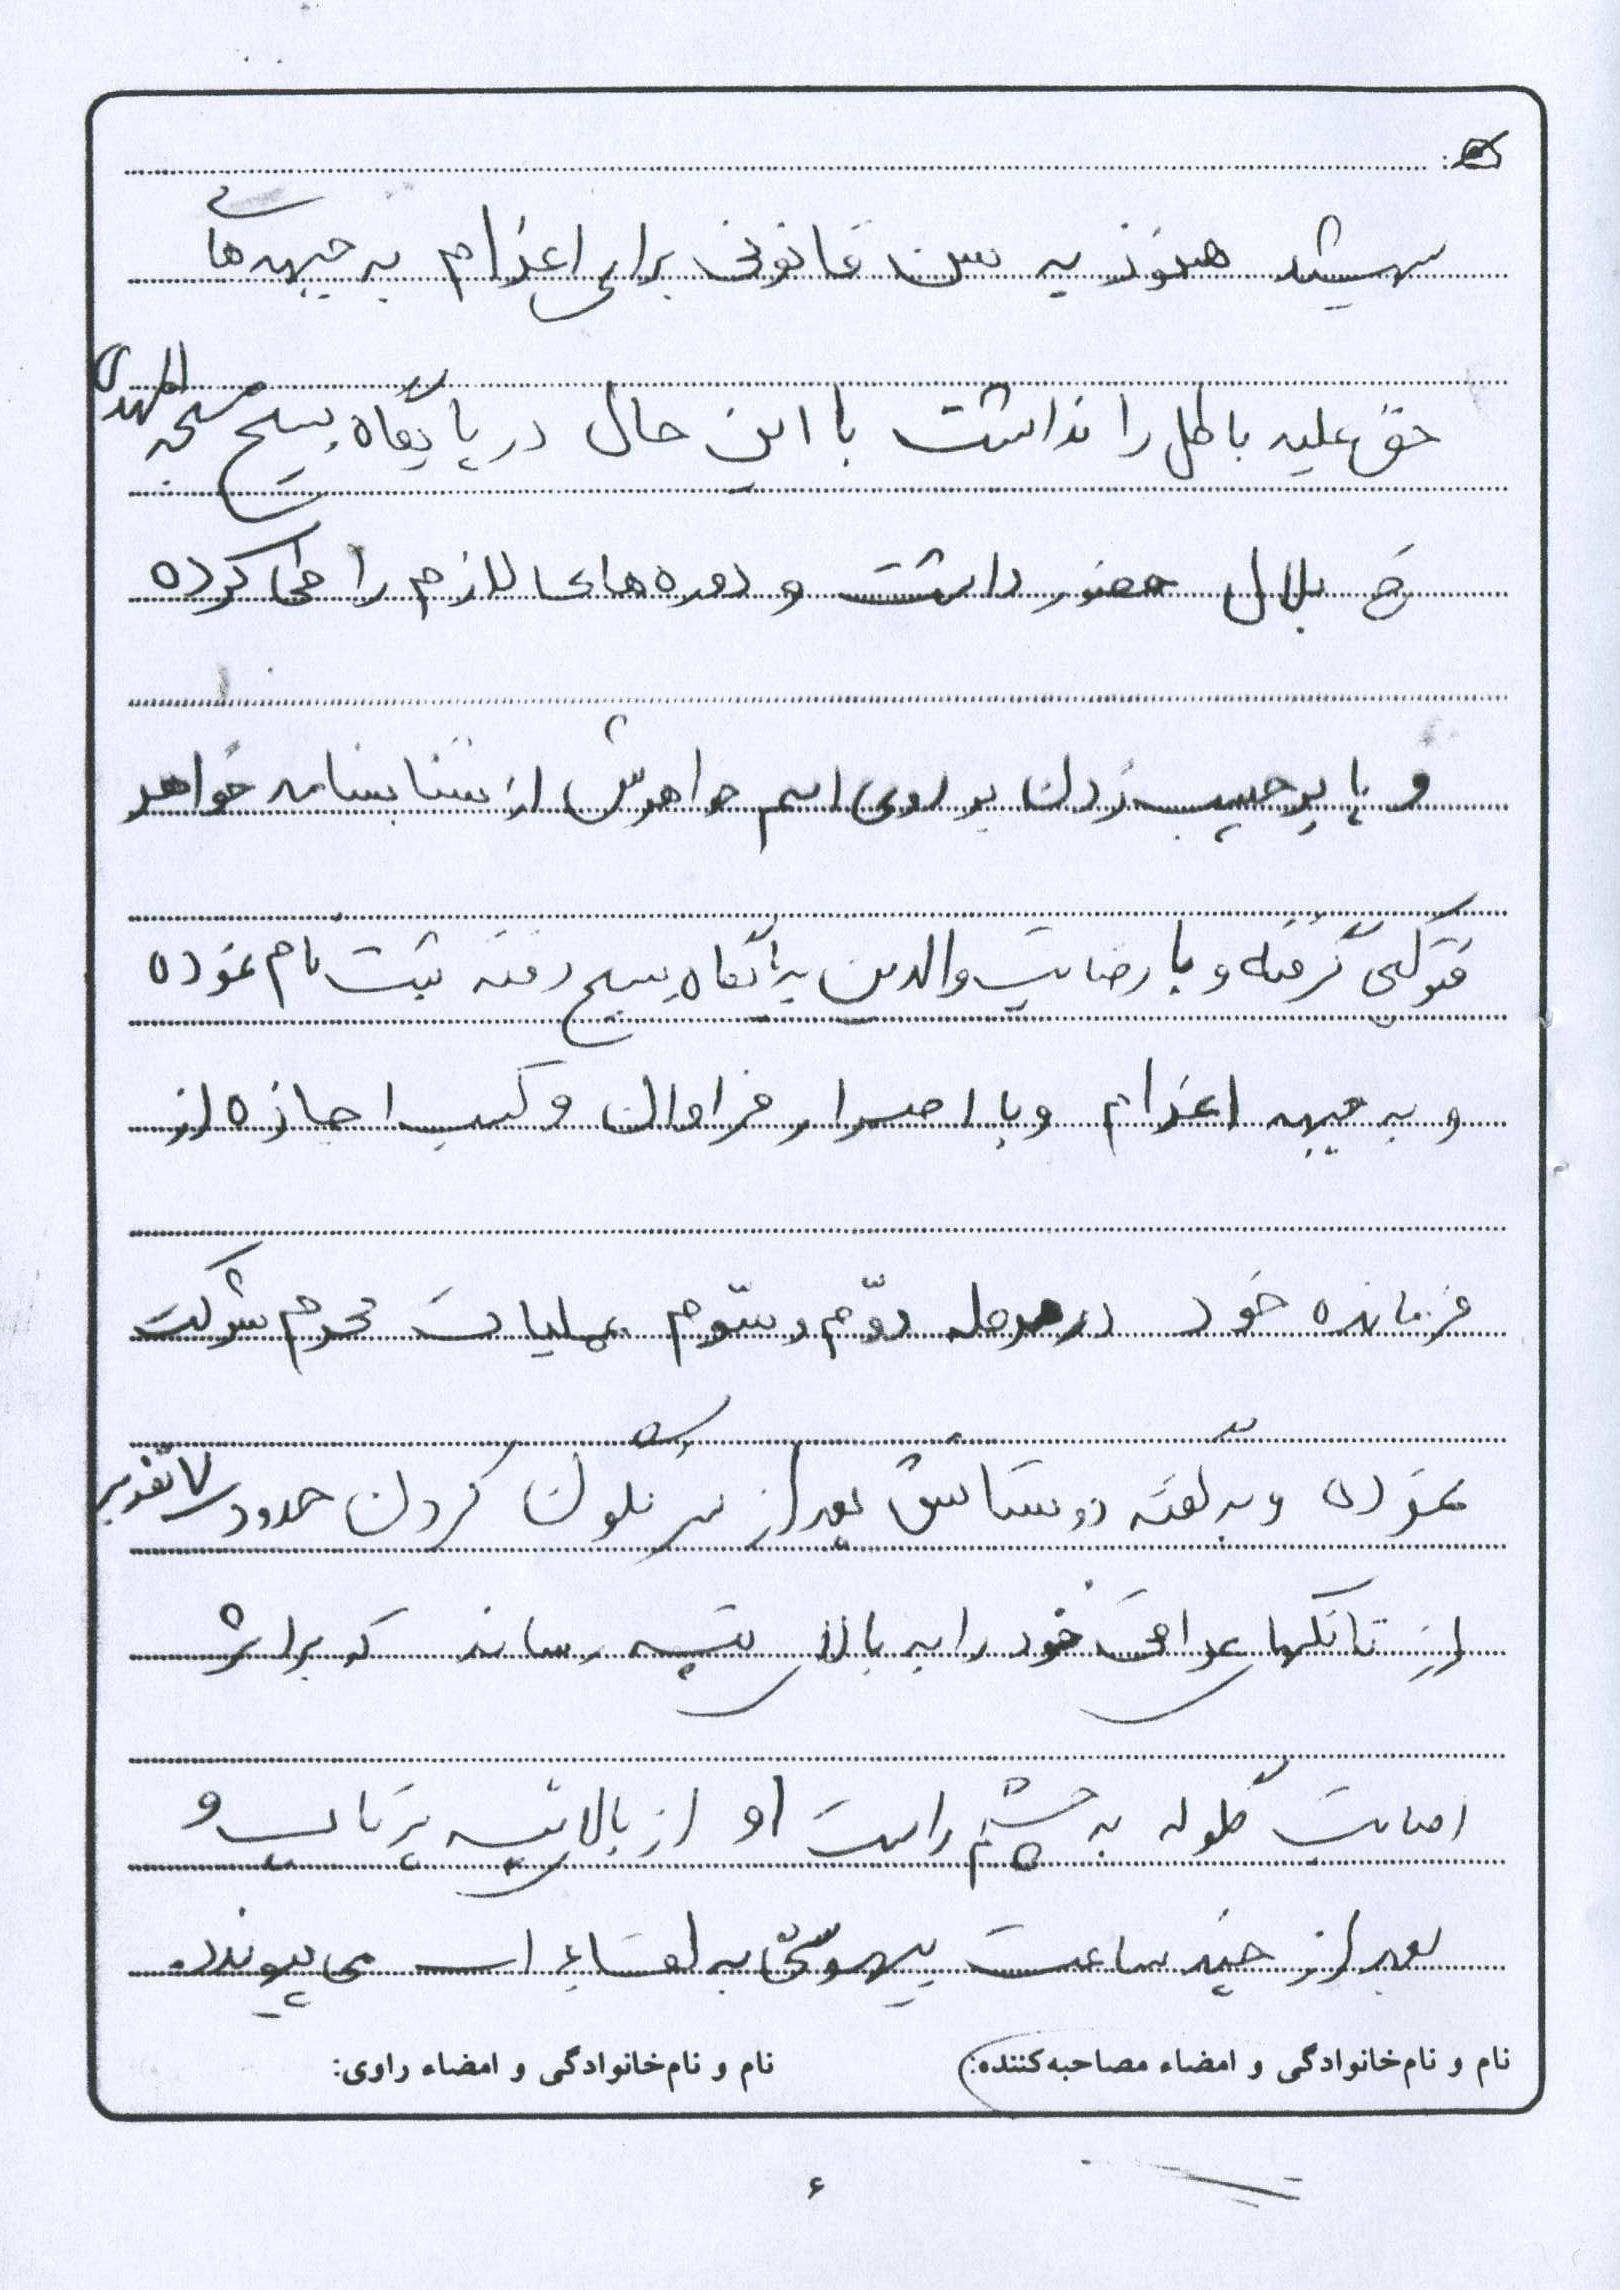 شهید هنوز به سن قانونی برای اعزام به جبهه های
حق علیه باطل را نداشت با این حال در پایگاه بسیج مسجد المهدی
خ بلال حضور داشت و دوره های لازم را طی کرده
و با برچسب زدن بر روی اسم خواهرش از شناسنامه خواهر
فتوکپی گرفته و با رضایت والدین به پایگاه بسیج رفته ثبت نام نموده
و به جبهه اعزام و با اصرار فراوان و کسب اجازه از
فرمانده خود در مرحله دوّم و سوّم عملیات محرم شرکت
نموده و به گفته دوستانش بعد از سرنگون کردن حدود تعدادی
از تانکهای عراقی خود را به بالای تپه رساند که بر اثر
اصابت گلوله به چشم راست او از بالای تپه پرتاب و
بعد از چند ساعت بیهوشی به لقاء الله می پیوندد.
نام و نام خانوادگی و امضاء مصاحبه کننده:
نام و نام خانوادگی و امضاء راوی:
۶